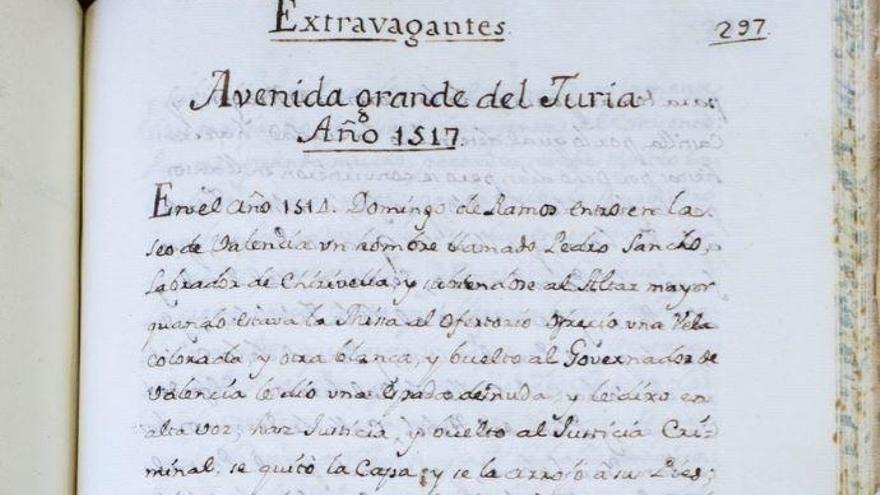 Extravagantes.
297.
Avenida grande del Turia
Año 1517.
En el año 1514. Domingo de Ramos entró en la
seo de Valencia vn hombre llamado Pedro Sancho,
Labrador de Chirivella, y subiendose al Altar mayor
quando estava la Missa al Ofertorio ofrecio vna Vela
colorada, y otra blanca, y buelto al Governador de
Valencia le dio vna Espada desnuda, y le dixo en
alta voz, haz Justicia, y buelto al Justicia Cri-
minal, se quitó la Capa, y se la arrojó a sus Pies;